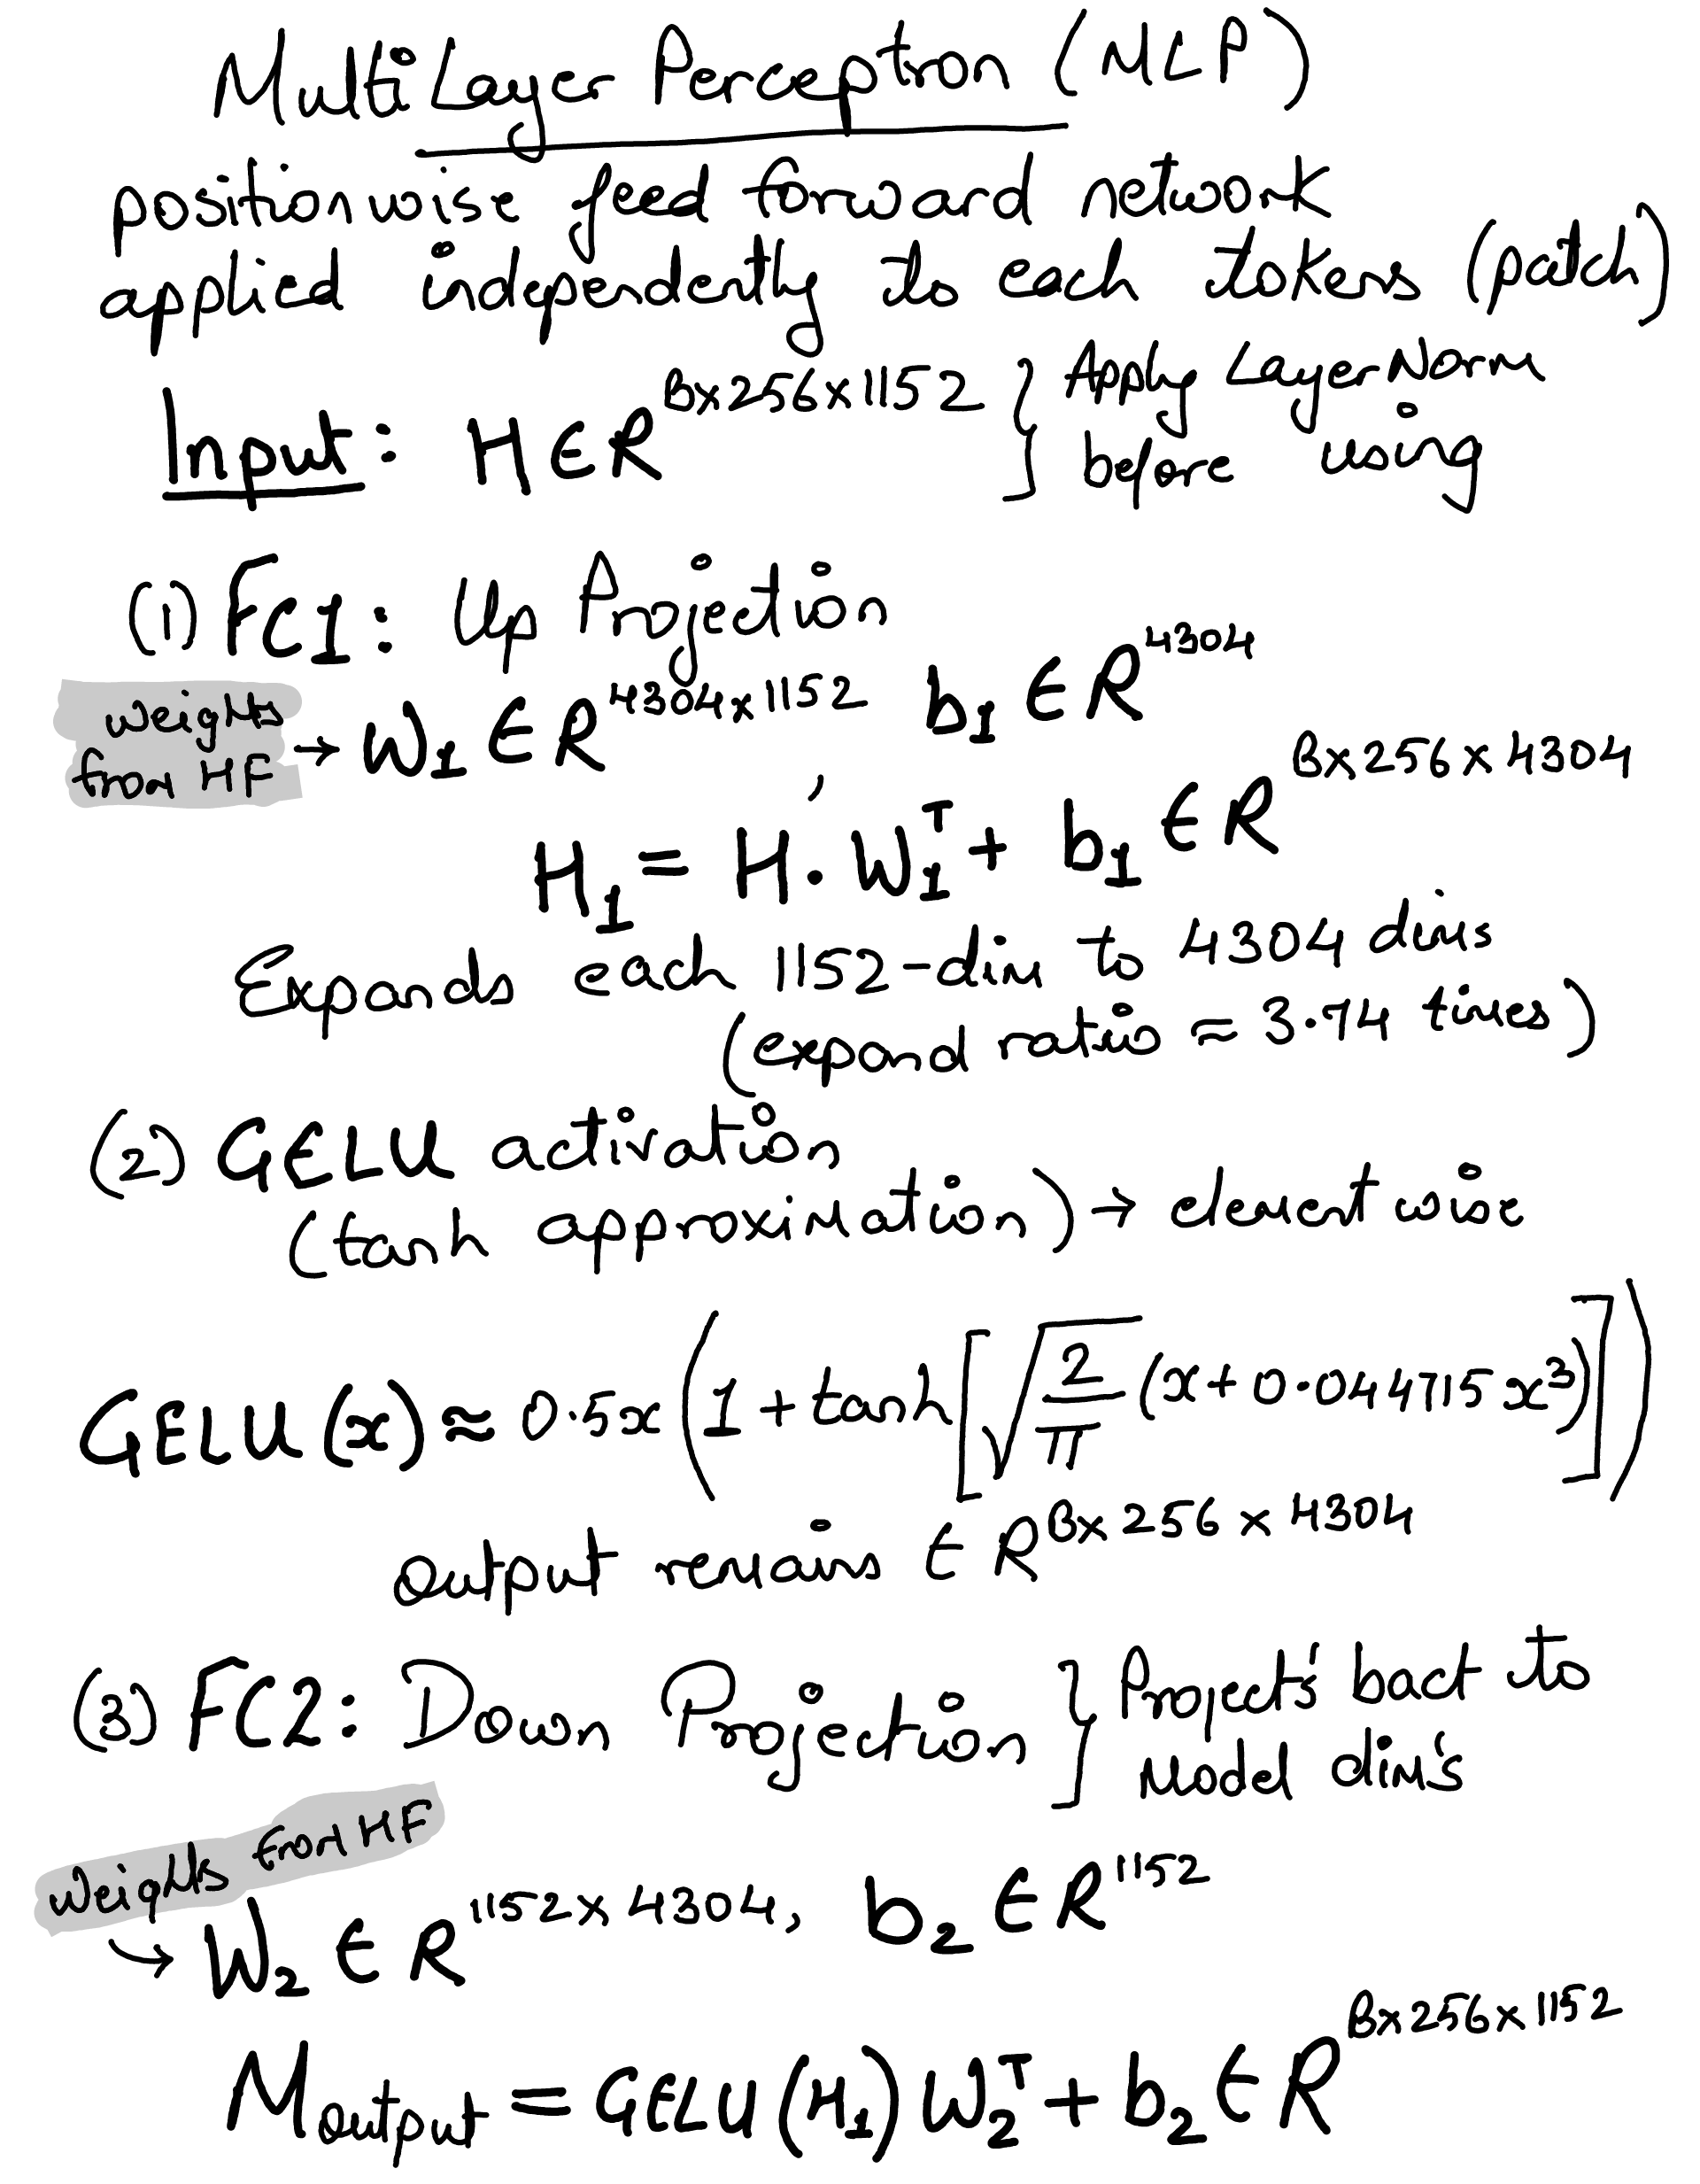 MultiLayer Perceptron (MLP)
positionwise feed forward network
applied independently to each tokens (patch)
Input: H ∈ R^{B×256×1152} } Apply LayerNorm
before using
(1) FC1: Up Projection
weights
from HF → W₁ ∈ R^{4304×1152}, b₁ ∈ R^{4304}
H₁ = H. W₁ᵀ + b₁ ∈ R^{B×256×4304}
Expands each 1152-dim to 4304 dims
(expand ratio ≈ 3.74 times)
(2) GELU activation
(tanh approximation) → element wise
GELU(x) ≈ 0.5x (1 + tanh [√(2/π) (x + 0.044715x³)])
output remains ∈ R^{B×256×4304}
(3) FC2: Down Projection } Project's bact to
Model dim's
Weights from HF
→ W₂ ∈ R^{1152×4304}, b₂ ∈ R^{1152}
M_{output} = GELU(H₁) W₂ᵀ + b₂ ∈ R^{B×256×1152}